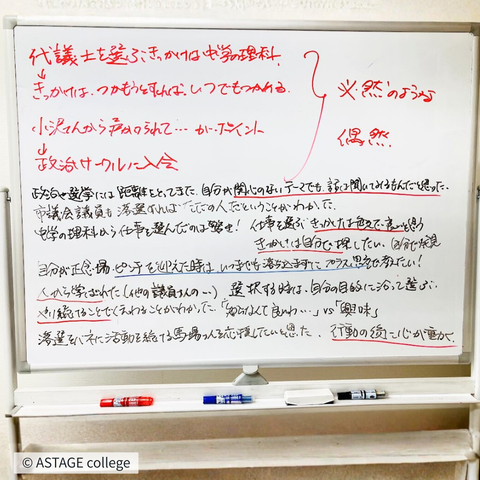 代議士を選ぶきっかけは中学の理科
↓
きっかけは、つかもうとすれば、いつでもつかめる
小沢さんから声かけられて…が…ポイント
↓
政治サークルに入会
必然のような
偶然
政治や選挙には距離をとってきた。自分が関心のないテーマでも、話は聞いてみるもんだと思った。
市議会議員も落選すれば「ただの人」だということがわかった。
中学の理科から仕事を選んだのは驚き! 仕事を選ぶきっかけは色々で良いと思う
きっかけは自分で探したい、自分で発見
自分が正念場・ピンチを迎えた時は、いつまでも落ち込まずにプラス思考で考えたい!
人から学ばれた(他の議員さんの…) 選択する時は、自分の目的に沿って選ぶ
やり続けることで伝わることがわかった。「知らなくて良いわ…」vs「興味」
落選をバネに活動を続ける馬場さんを応援したいと思った。 行動の後に心が動く
© ASTAGE college